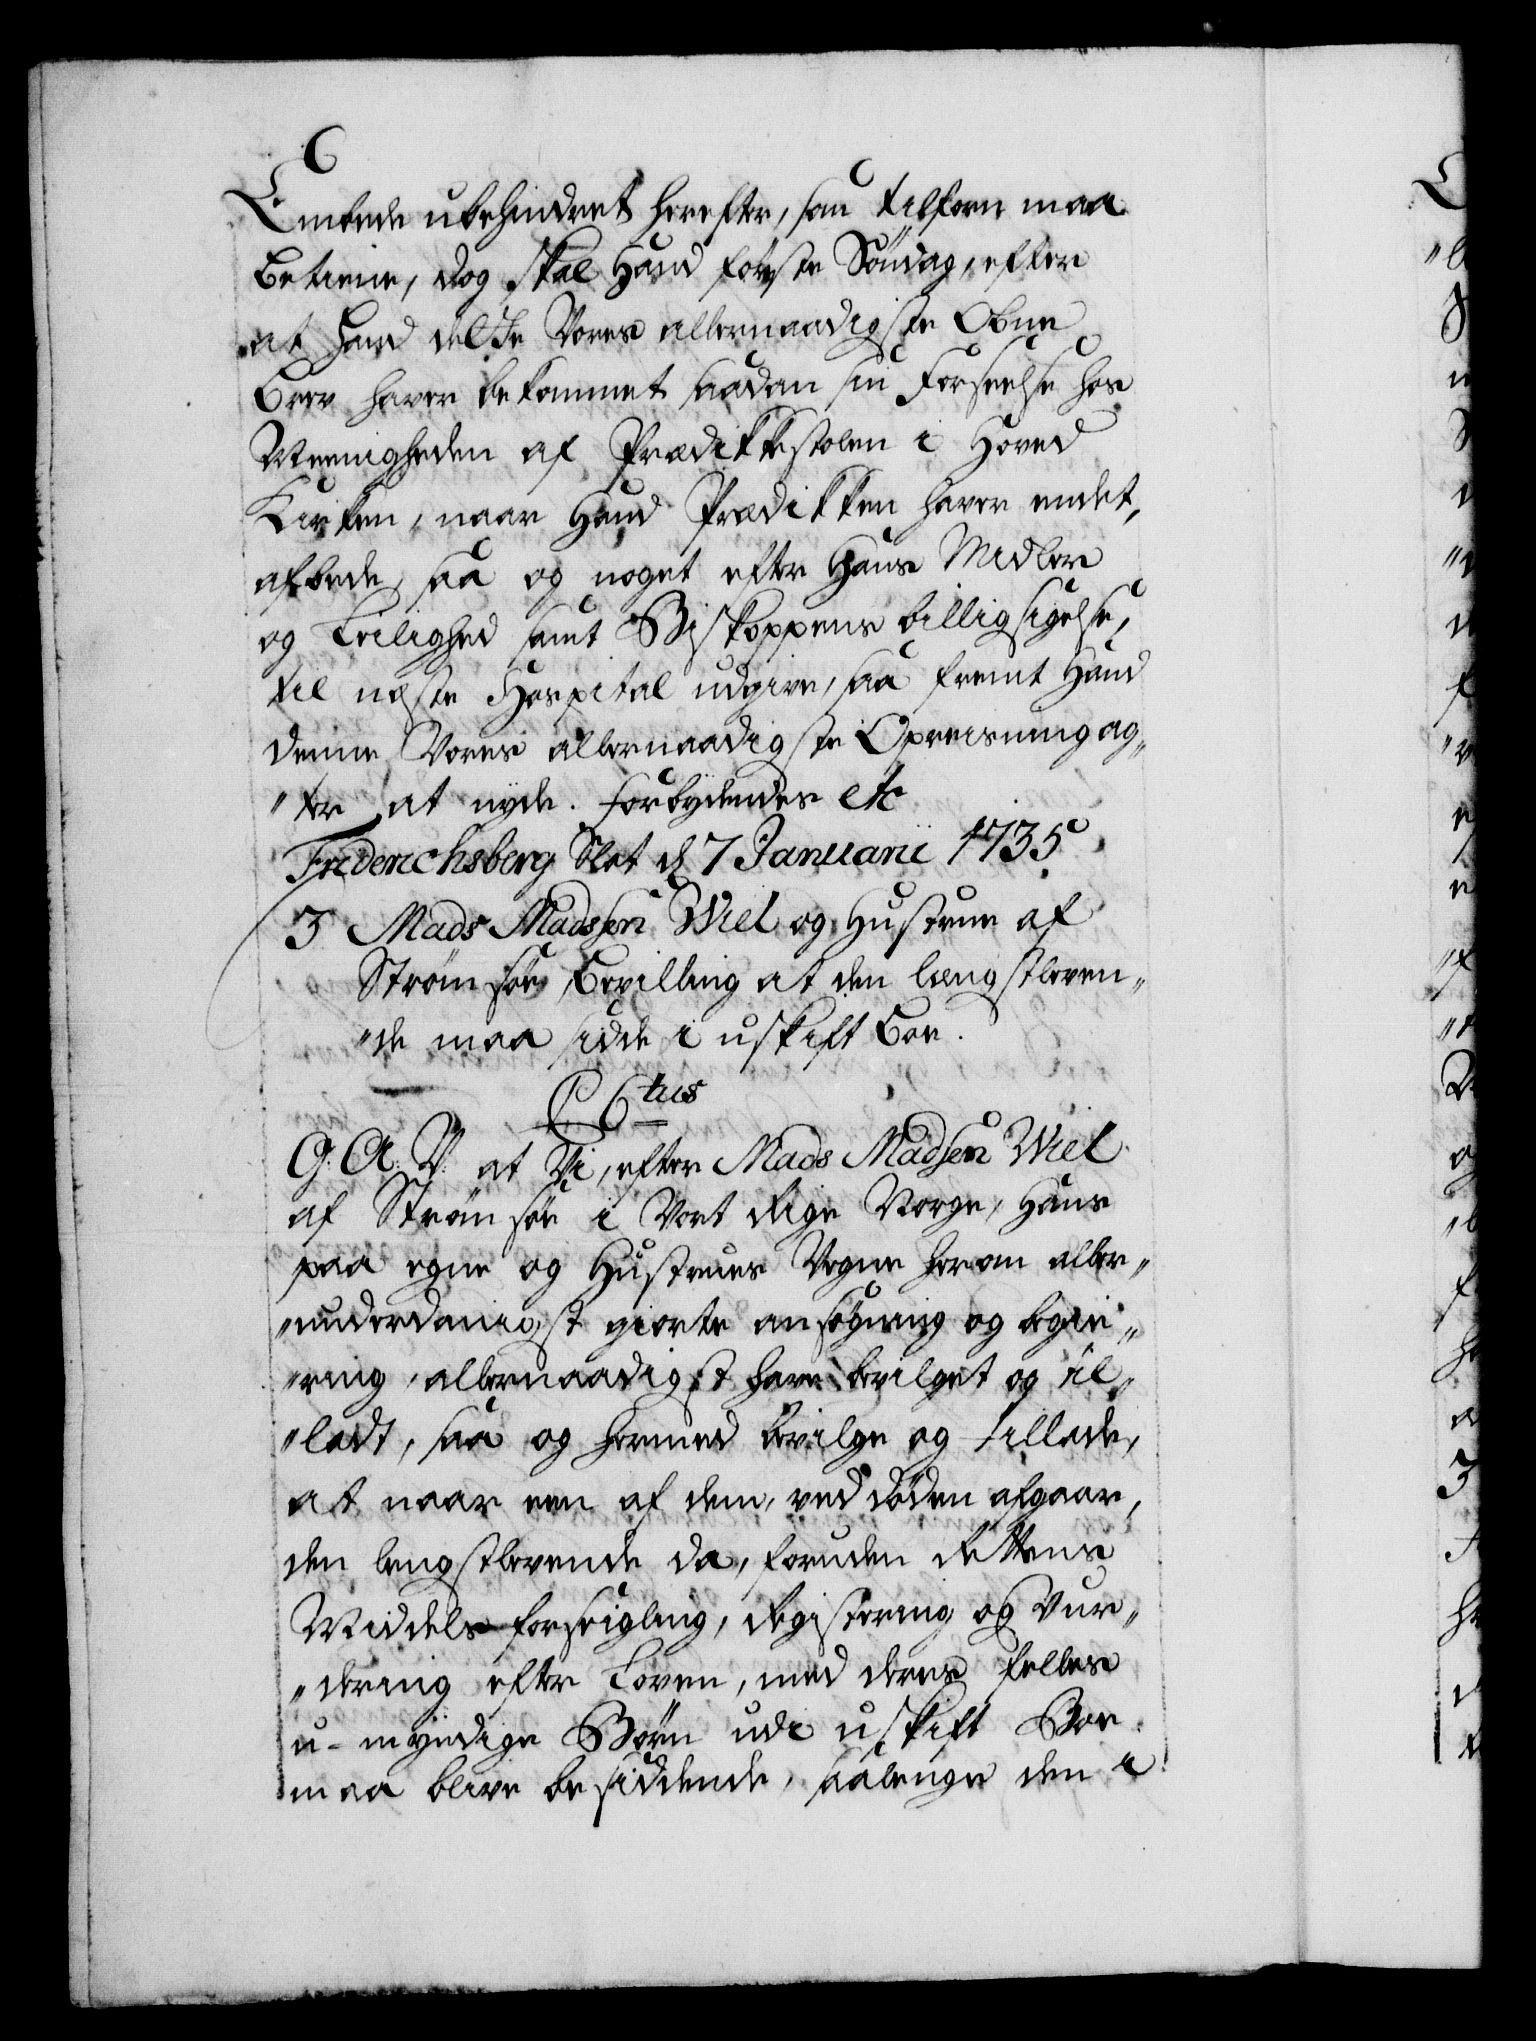 Embede ubehindret herefter, som tilforn maa
betiene, dog skal Hand förste Söndag, efter
at hand dette Vores allernaadigste Obne
Brev haver bekommet saadan sin Forseelse hos
Meenigheden af Prædikkestolen i Hoved
Kirken, naar Hand Prædikken haver endet,
afbede, saa og noget efter Hans Midler
og Leilighed samt Biskoppens billigsigelse,
til næste Hospital udgive, saa fremt Hand
denne Vores allernaadigste Opreisning ag„
„ter at nyde. Forbydendes etc
Friderichsberg Slot d 7 Januarii 1735
3 Mads Madssen Wiel og Hustrue af
Strömsöe Bevilling at den længstleven„
„de maa sidde i uskift Boe.
C 6tus
G. A. V. at Vi, efter Mads Madsen Wiel
af Strömsöe i Vort Rige Norge, Hans
paa egne og Hustrues Vegne herom aller„
„underdanigst giorte ansögning og begie„
„ring, allernaadigst have bevilget og til„
„ladt, saa og hermed bevilge og tillade,
at naar een af dem, ved döden afgaar,
den lengstlevende da, foruden Rettens
Middels forseigling, Registering og Vur„
„dering efter Loven, med deres felles
u-myndige Börn udi uskift Boe
maa blive besiddende, saalenge den i